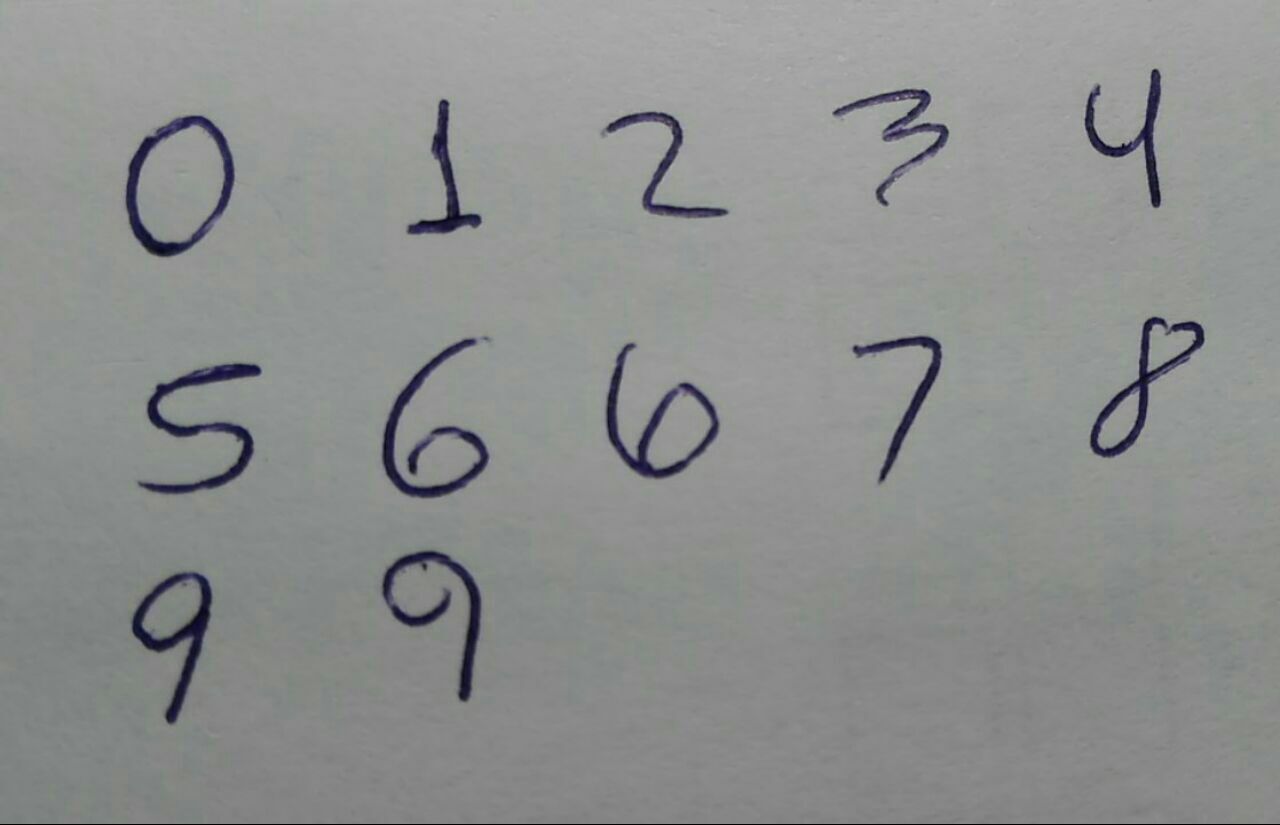 0 1 2 3 4
5 6 6 7 8
9 9